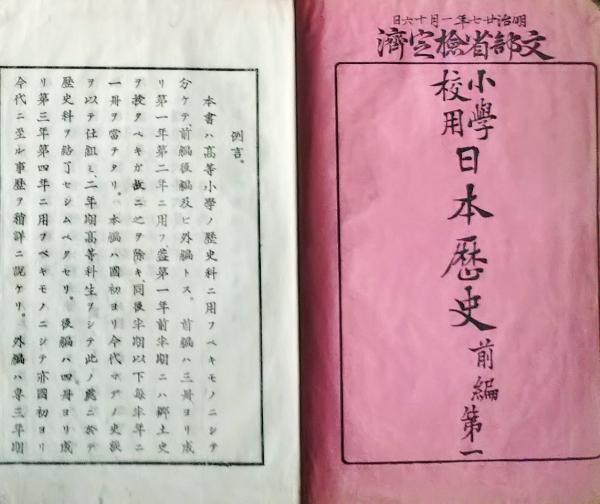 明治廿七年一月十六日
文部省檢定濟
小學校用
日本歷史
前編第一
例言。
本書ハ高等小學ノ歷史科ニ用フベキモノニシテ
分ケテ前編後編及ビ外編トス。前編ハ三冊ヨリ成
リ第一年第二年ニ用フ蓋第一年前半期ニハ鄉土史
ヲ授クベキガ故ニ之ヲ除キ、同後半期以下每半年ニ
一冊ヲ當テタリ。本編ハ國初ヨリ今代マデノ史談
ヲ以テ仕組ミ、二年期高等科生ヲシテ此ノ處ニ於テ
歷史科ヲ結了セシムベクセリ。後編ハ四冊ヨリ成
リ第三年第四年ニ用フベキモノニシテ亦國初ヨリ
今代ニ至ル事歷ヲ稍詳ニ說ケリ。外編ハ專三年期